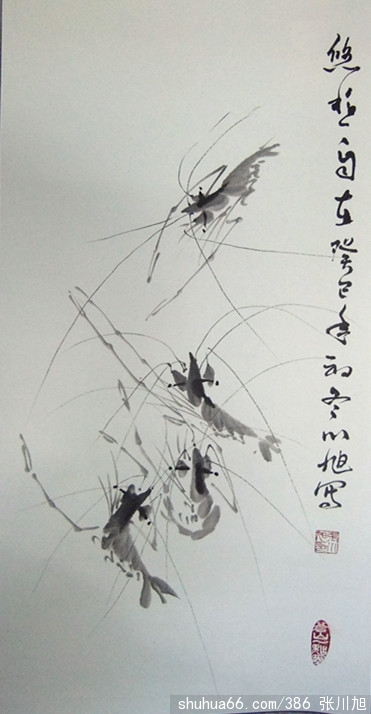 悠哉自在癸巳年初冬川旭写
shuhua66.com/386 张川旭